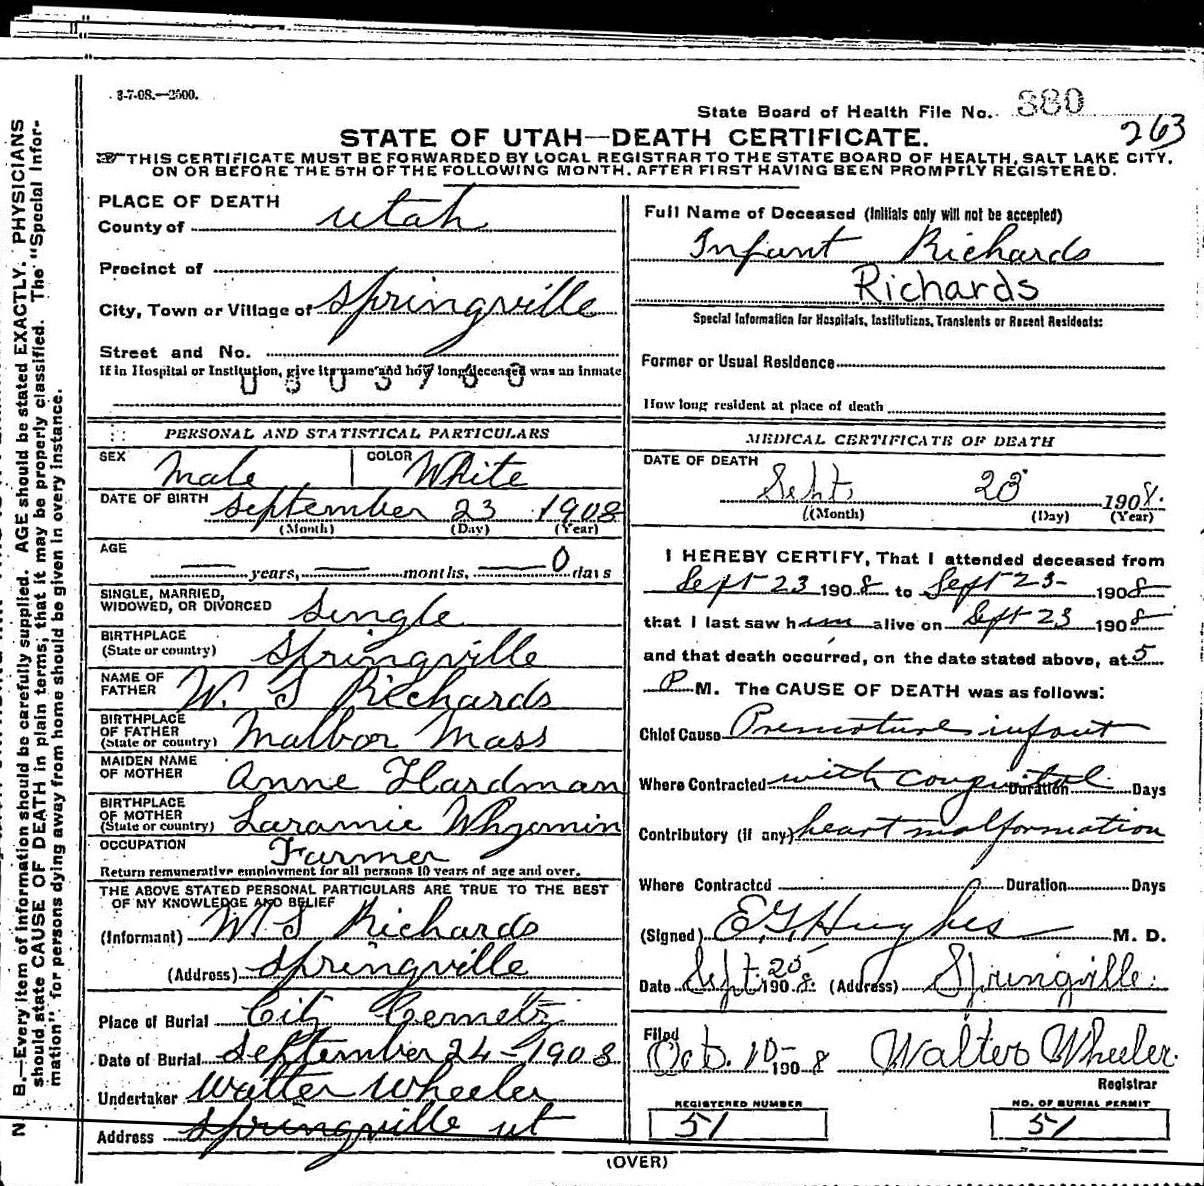 3-7-08.—2500.
State Board of Health File No. 380
263
STATE OF UTAH—DEATH CERTIFICATE.
THIS CERTIFICATE MUST BE FORWARDED BY LOCAL REGISTRAR TO THE STATE BOARD OF HEALTH, SALT LAKE CITY,
ON OR BEFORE THE 5TH OF THE FOLLOWING MONTH, AFTER FIRST HAVING BEEN PROMPTLY REGISTERED.
PLACE OF DEATH
County of Utah
Precinct of
City, Town or Village of Springville
Street and No.
If in Hospital or Institution, give its name and how long deceased was an inmate
PERSONAL AND STATISTICAL PARTICULARS
SEX Male COLOR White
DATE OF BIRTH September 23 1908
(Month) (Day) (Year)
AGE
— years, — months, — 0 days
SINGLE, MARRIED,
WIDOWED, OR DIVORCED Single
BIRTHPLACE
(State or country) Springville
NAME OF
FATHER W. S Richards
BIRTHPLACE
OF FATHER
(State or country) Malbor Mass
MAIDEN NAME
OF MOTHER Anne Hardman
BIRTHPLACE
OF MOTHER
(State or country) Laramie Whyomin
OCCUPATION Farmer
Return remunerative employment for all persons 10 years of age and over.
THE ABOVE STATED PERSONAL PARTICULARS ARE TRUE TO THE BEST
OF MY KNOWLEDGE AND BELIEF
(Informant) W. S Richards
(Address) Springville
Place of Burial City Cemetz
Date of Burial September 24-1908
Undertaker Walter Wheeler
Address Springville ut
Full Name of Deceased (Initials only will not be accepted)
Infant Richards
Richards
Special Information for Hospitals, Institutions, Transients or Recent Residents:
Former or Usual Residence
How long resident at place of death
MEDICAL CERTIFICATE OF DEATH
DATE OF DEATH
Sept. 23 1908.
(Month) (Day) (Year)
I HEREBY CERTIFY, That I attended deceased from
Sept 23 1908 to Sept 23- 1908
that I last saw him alive on Sept 23 1908
and that death occurred, on the date stated above, at 5
P M. The CAUSE OF DEATH was as follows:
Chief Cause Premature infant
Where Contracted with congenital Duration Days
Contributory (if any) heart malformation
Where Contracted Duration Days
(Signed) E. G. Hughes M. D.
Date Sept. 25 1908. (Address) Springville.
Filed
Oct. 10- 1908 Walter Wheeler.
Registrar
REGISTERED NUMBER
51
NO. OF BURIAL PERMIT
51
(OVER)
N. B.—Every item of information should be carefully supplied. AGE should be stated EXACTLY. PHYSICIANS
should state CAUSE OF DEATH in plain terms, that it may be properly classified. The "Special Infor-
mation" for persons dying away from home should be given in every instance.